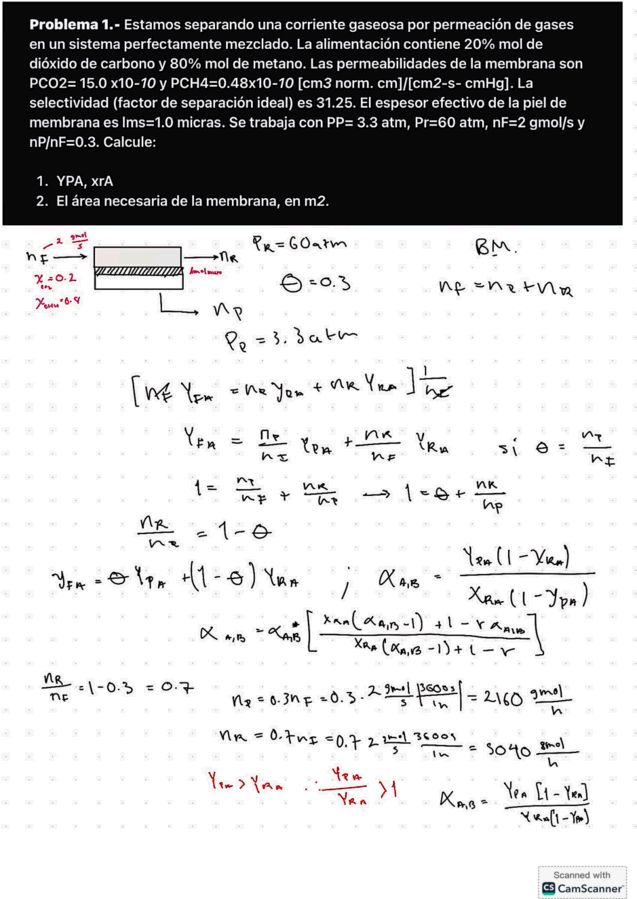 Problema 1.- Estamos separando una corriente gaseosa por permeación de gases
en un sistema perfectamente mezclado. La alimentación contiene 20% mol de
dióxido de carbono y 80% mol de metano. Las permeabilidades de la membrana son
PCO2= 15.0 x10-10 y PCH4=0.48x10-10 [cm3 norm. cm]/[cm2-s- cmHg]. La
selectividad (factor de separación ideal) es 31.25. El espesor efectivo de la piel de
membrana es lms=1.0 micras. Se trabaja con PP= 3.3 atm, Pr=60 atm, nF=2 gmol/s y
nP/nF=0.3. Calcule:
1. YPA, xrA
2. El área necesaria de la membrana, en m2.
2 gmol/s
nF → → nR
x=0.2
nP
PR = 60atm
θ = 0.3
PP = 3.3 atm
BM.
YFA = nP/nF YPA + nR/nF YRA si θ = nP/nF
→ 1 = θ + nR/nP
= 1 - θ
yFA = θ YPA + (1 - θ) YRA ; αA,B = YPA (1 - XRA) / XRA (1 - YPA)
α A,B = αA,B* [ XRA (αA,B - 1) + 1 - r αA,B / XRA (αA,B - 1) + 1 - r ]
nR/nF = 1 - 0.3 = 0.7
= 0.3 nF = 0.3 · 2 gmol/s |3600s/1h| = 2160 gmol/h
nR = 0.7 nF = 0.7 2 gmol/s 3600s/1h = 5040 gmol/h
YPA > YRA ∴ YPA/YRA > 1
αA,B = YPA [1 - YRA] / YRA [1 - YPA]
Scanned with
CS CamScanner